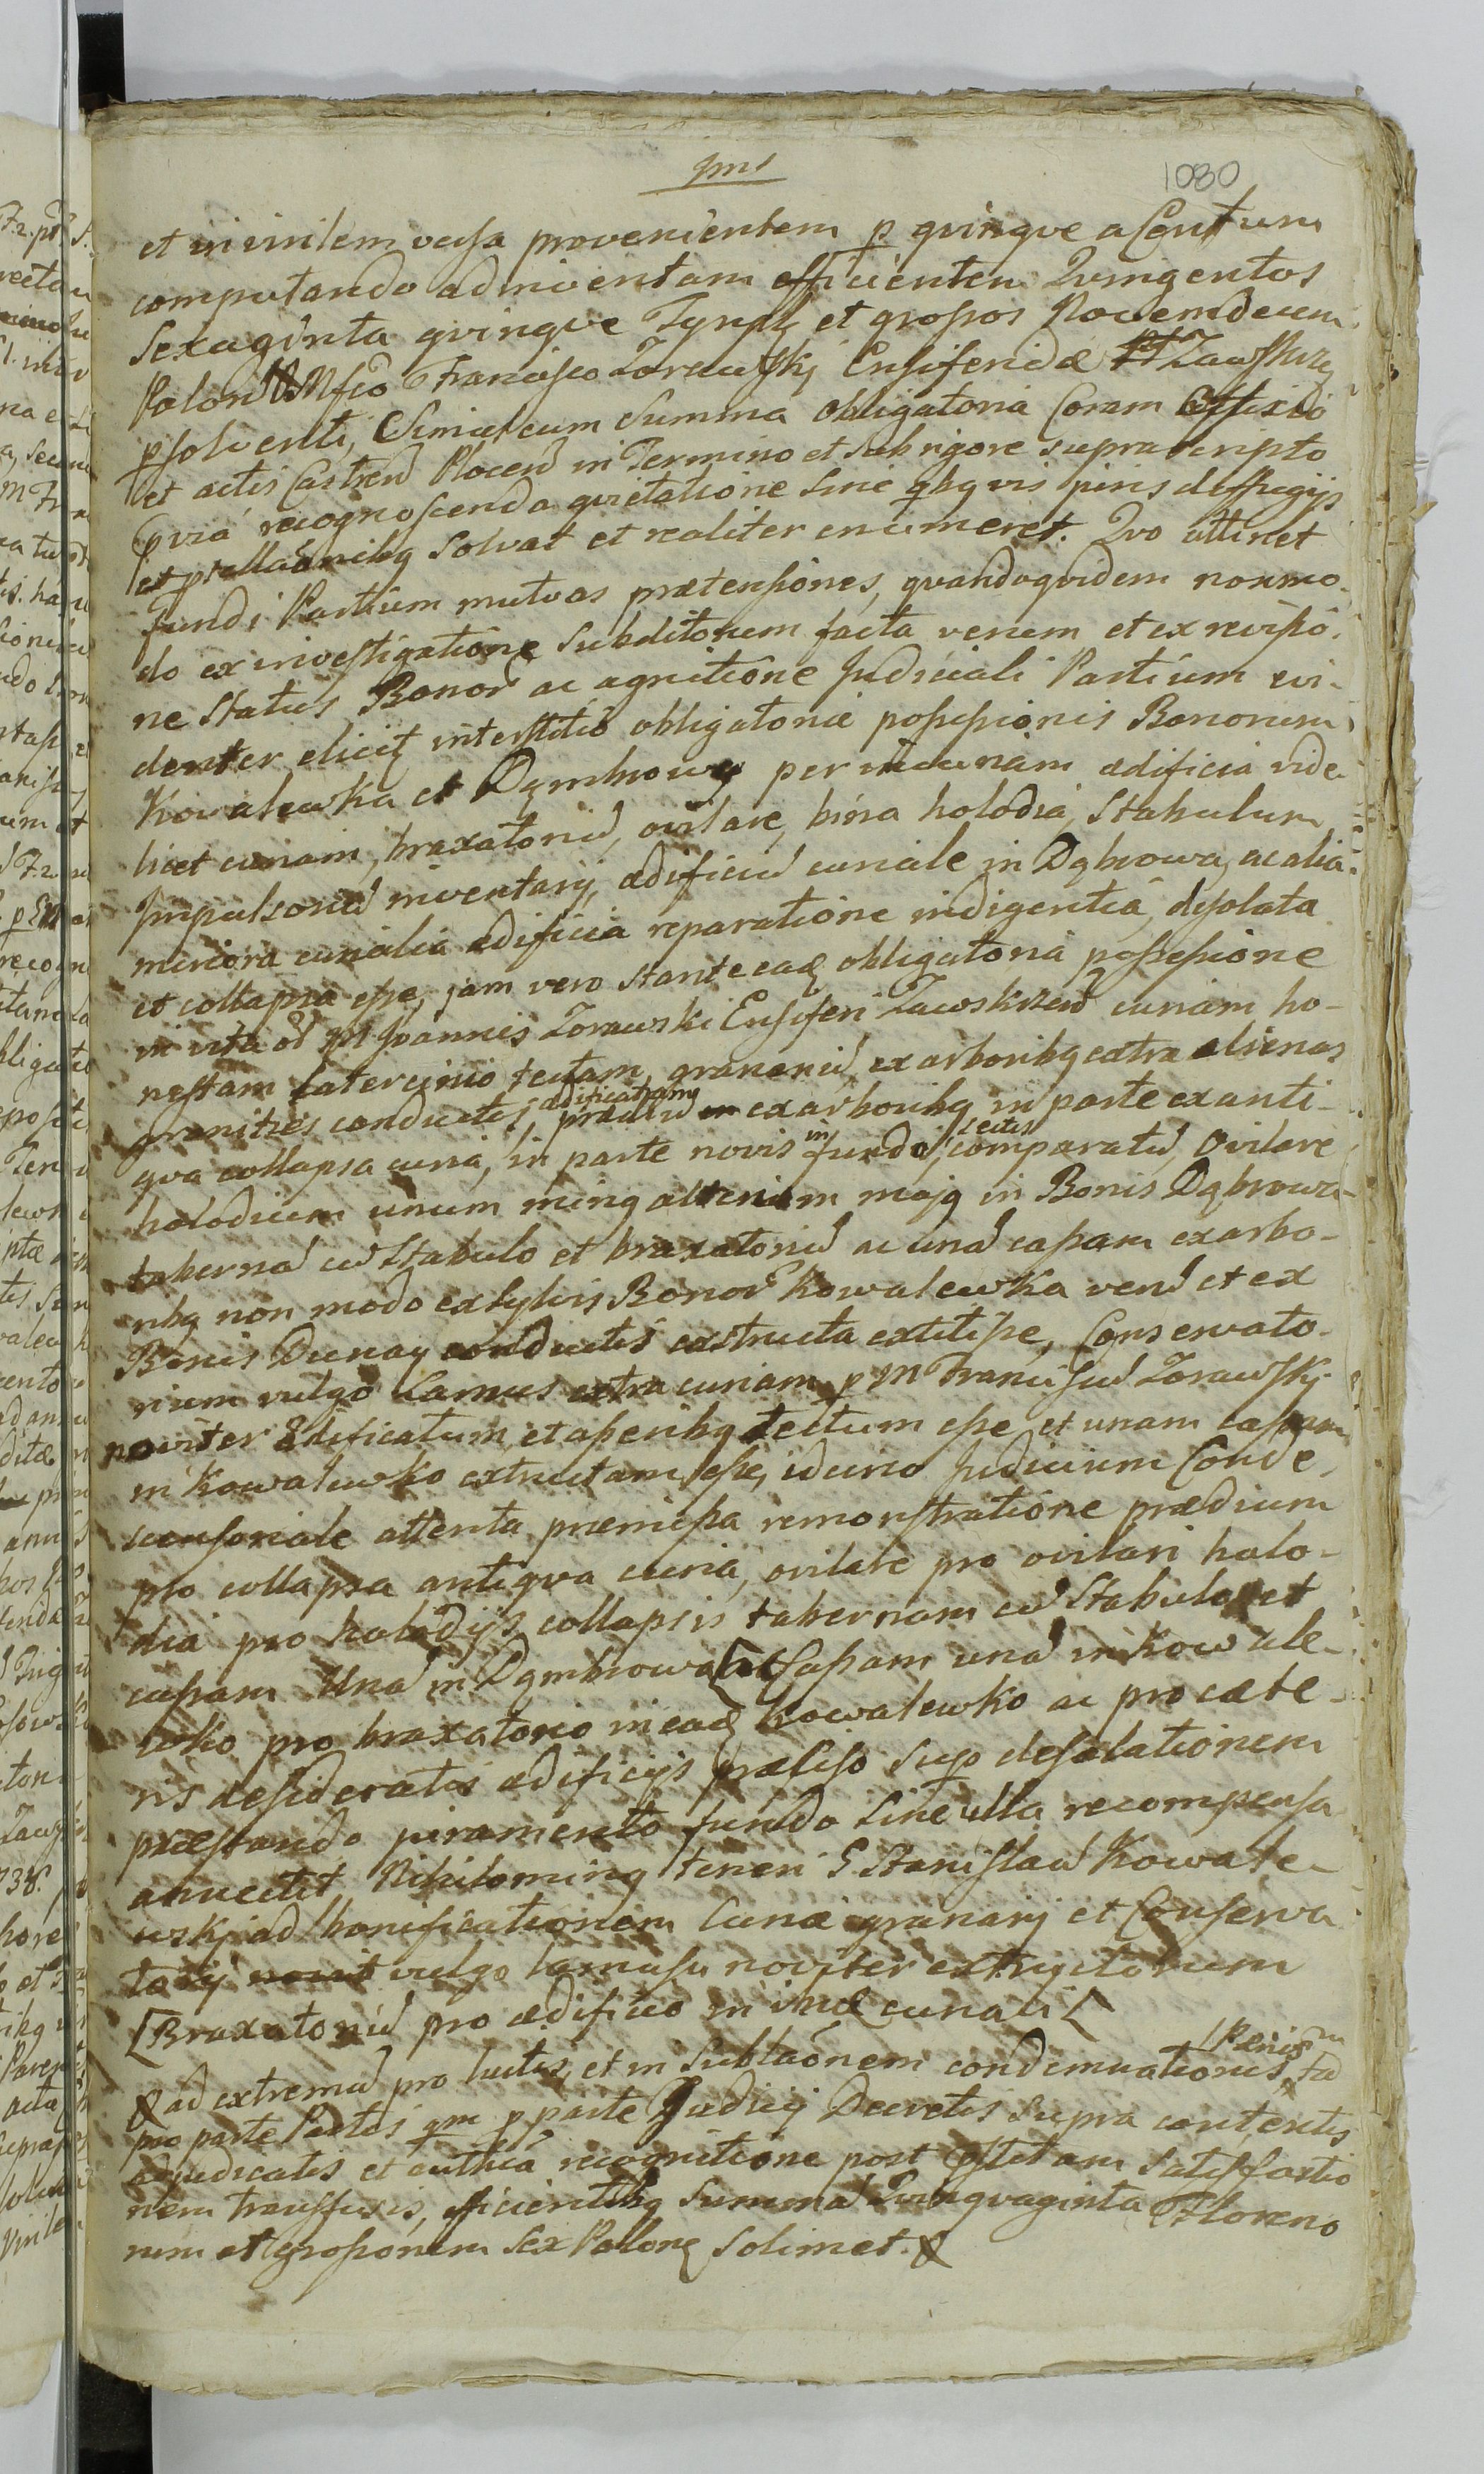 1080
et in virilem versa provenientem p qvinqve a Centum
computando adinventam efficientem Qvingentos
Sexaginta qvinqve Tynph et grossos Novemdecim
Polon Mfco Francisco Zorawskj Ensiferidæ Zawskrzy
psolventi, Simul cum Summa obligatoria Coram Officio
et actis Castren Plocen in Termino et sub rigore suprascripto
recognoscenda qvietatione sine qbqvis juris deffugijs
Solvat et realiter enumeret. Qvo attinet
fundi Partium mutvas prætensiones, qvandoqvidem nonmo-
do ex investigatione Subditorum facta verum et ex revisio-
ne Status Bonor ac agnitione Judiciali Partium evi-
denter elicit interstitio obligatoriæ possessionis Bonorum
Kowalewka et Dąmbrowy per ædificia vide-
licet curiam, braxatoriu, ovilare, bina holodia, Stabulum
Impulsoriu inventarij, ædificiu curiale in Dąbrowa, ac alia
minora curialia ædificia reparatione indigentia, desolata
et collapsa esse, jam vero stante eadē obligatoria possessione
in vita od M Joannis Zorawski Ensiferi Zawskrzen curiam ho-
nestam latercinio tectam, granariu ex arboribq extra alienas
granities conductis, prædiu ædificatam ex arboribq in parte ex anti-
qva collapsa curia, in parte novis in fundo sectis comparatu, Ovilare
holodium unum minq alterum majq in Bonis Dąbrowa
tabernā cu Stabulo et braxatoriu ac unā casam ex arbo-
ribq non modo ex Sylvis Bonor Kowalewka veru et ex
Bonis Dunay conductis exstructa extitisse, Conservato-
rium vulgo Lamus extra curiam p M Franciscu Zorawskj
noviter ædificatum, et asseribq tectum esse et unam casam
in Kowalewko extructam esse, idcirco Judicium Conde-
scensoriale attenta præmissa remonstratione prædium
pro collapsa antiqva curia, ovilare pro ovilari holo-
dia pro holodijs collapsis tabernam cu Stabulo et
casam Unā in Dąmbrowa Casam unā in Kowale-
wko pro braxatorio in eadē Kowalewko ac pro cæte-
ris desideratis ædificijs præliso sup desolationem
præstando juramento fundo sine ulla recompensa
annectit, Nihilominq teneri G Stanislau Kowale-
wskj ad bonificationem Curiæ granarij et Conserva
torij vulgo lamusu noviter extructorum
Braxatoriu pro ædificio in curali
ad extremu pro luitis, et in Sublaonem condemnationis
pro parte Partis qm p parte Judicij Decretis supra contentis
adjudicatis et recognitione post satisfactio
nem transfusis, efficientibq Summā Qvinqvaginta Floreno
rum et grossorum Sex Polon solvnet.